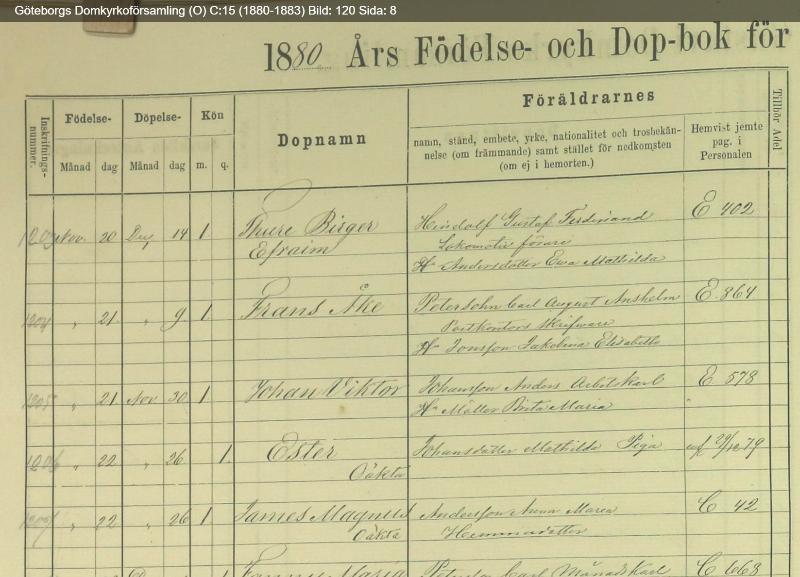 Göteborgs Domkyrkoförsamling (O) C:15 (1880-1883) Bild: 120 Sida: 8
1880 Års Födelse- och Dop-bok för
Inskrifnings-nummer.
Födelse-
Månad dag
Döpelse-
Månad dag
Kön
m. q.
Dopnamn
Föräldrarnes
namn, stånd, embete, yrke, nationalitet och trosbekän-
nelse (om främmande) samt stället för nedkomsten
(om ej i hemorten.)
Hemvist jemte
pag. i
Personalen
Tillhör Adel
1203 Nov. 20 14 1 Thure Birger Gustaf Ferdinand E 402
Efraim Lokomotiv förare
Hu Andersdotter Ewa Mathilda
1204 " 21 " 9 1 Frans Åke Petersohn Carl August Anshelm E. 864
Postkontors skrifware
Hu Jonsson Jakobina Elisabeth
1205 " 21 Nov 30 1 Johan Viktor Johansson Anders Arbetskarl E 578
Hu Möller Brita Maria
1206 " 22 " 26 1. Ester Johansdotter Mathilda Piga
Oäkta
1207 " 22 " 26 1. James Magnus Andersson Anna Maria C 42
Oäkta
Maria Carl Månadskarl C 663